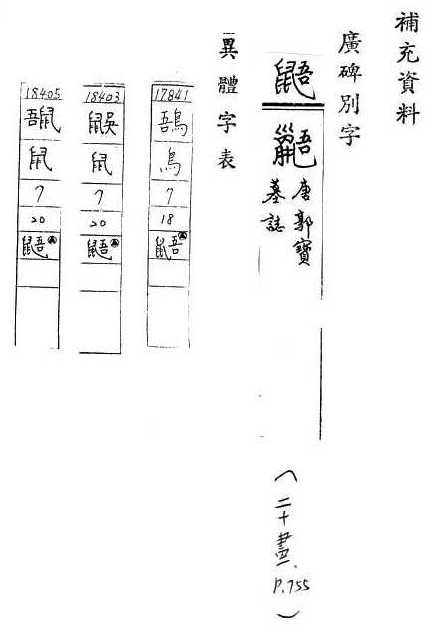 補充資料
廣碑別字
鼯
唐郭寶
墓誌
(二十畫. P.755)
異體字表
17841
鳥
7
18
鼯
18403
鼠
7
20
鼯
18405
鼠
7
20
鼯